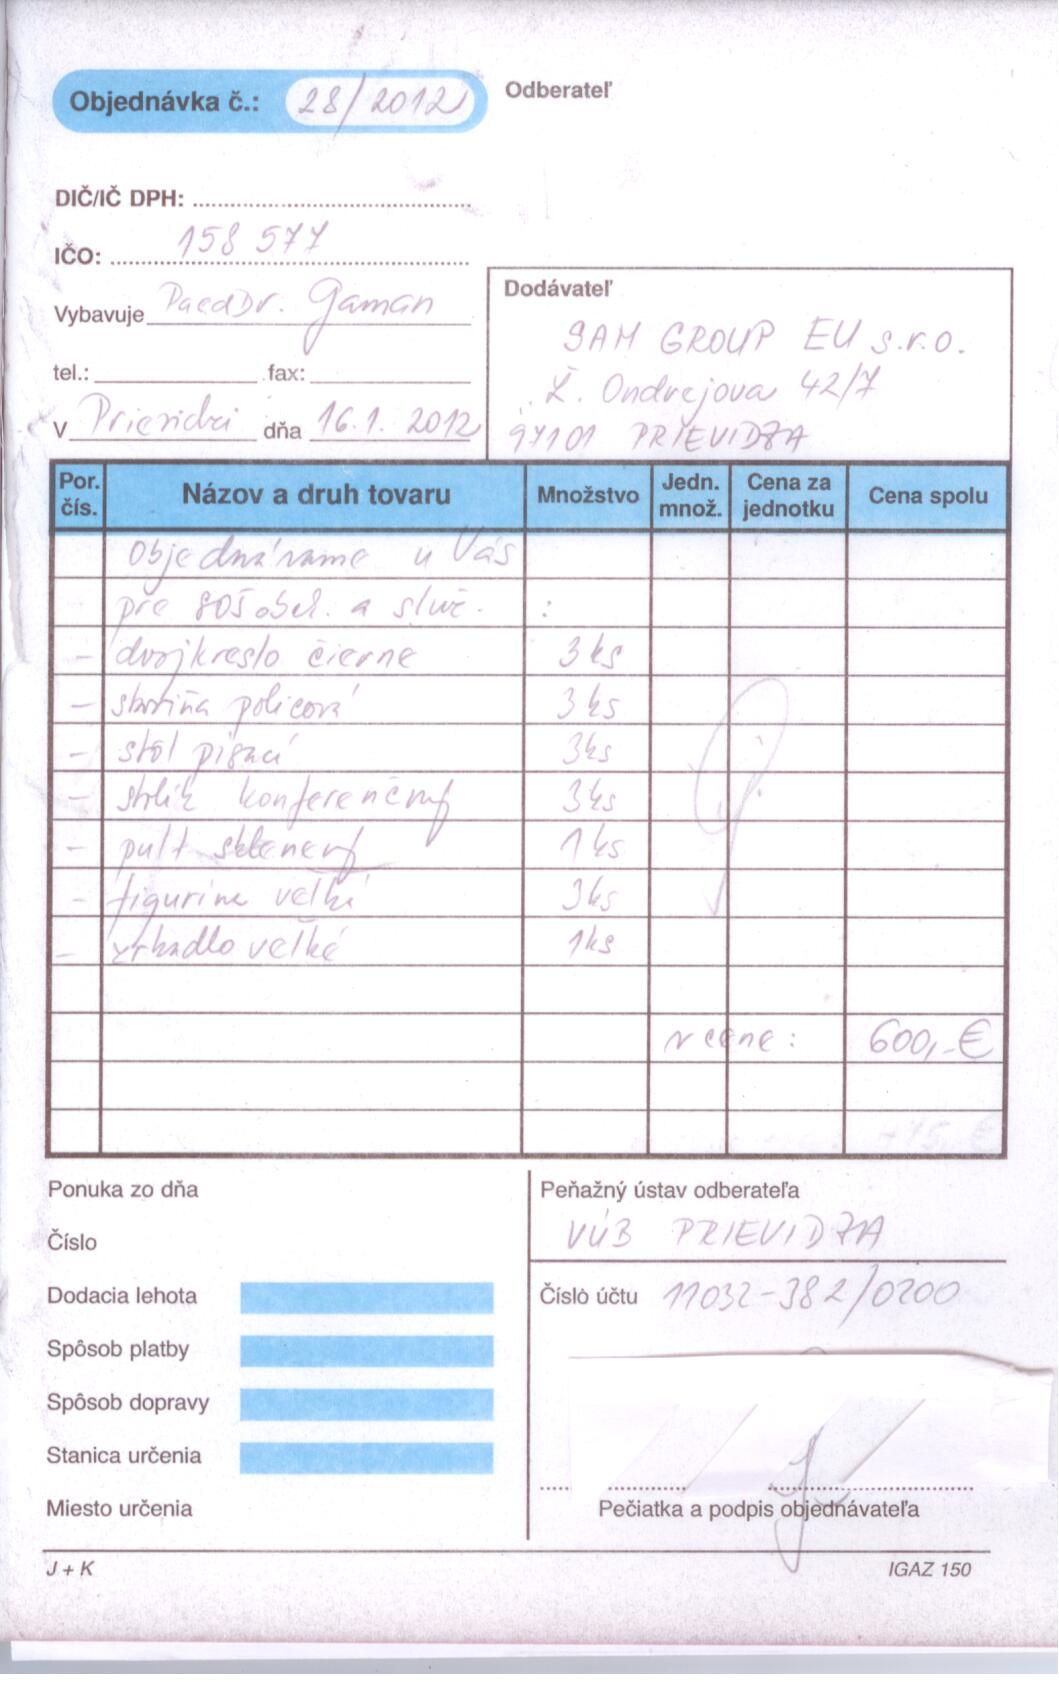 Objednávka č.: 28/2012
Odberateľ
DIČ/IČ DPH:
IČO: 158 577
Vybavuje PaedDr. Gaman
tel.: fax:
V Prievidzi dňa 16.1. 2012
Dodávateľ
SAM GROUP EU s.r.o.
Ľ. Ondrejova 42/7
97101 PRIEVIDZA
Por. čís. Názov a druh tovaru Množstvo Jedn. množ. Cena za jednotku Cena spolu
Objednávame u Vás
pre SOŠ obch. a služ. :
- dvojkreslo čierne 3 ks
- skriňa policová 3 ks
- stôl písací 3ks
- stolík konferenčný 3ks
- pult sklenený 1 ks
- figurína veľká 3ks
- zrkadlo veľké 1ks
v cene: 600,-€
Ponuka zo dňa
Číslo
Dodacia lehota
Spôsob platby
Spôsob dopravy
Stanica určenia
Miesto určenia
Peňažný ústav odberateľa
VÚB PRIEVIDZA
Číslo účtu 11032-382/0200
Pečiatka a podpis objednávateľa
J + K
IGAZ 150